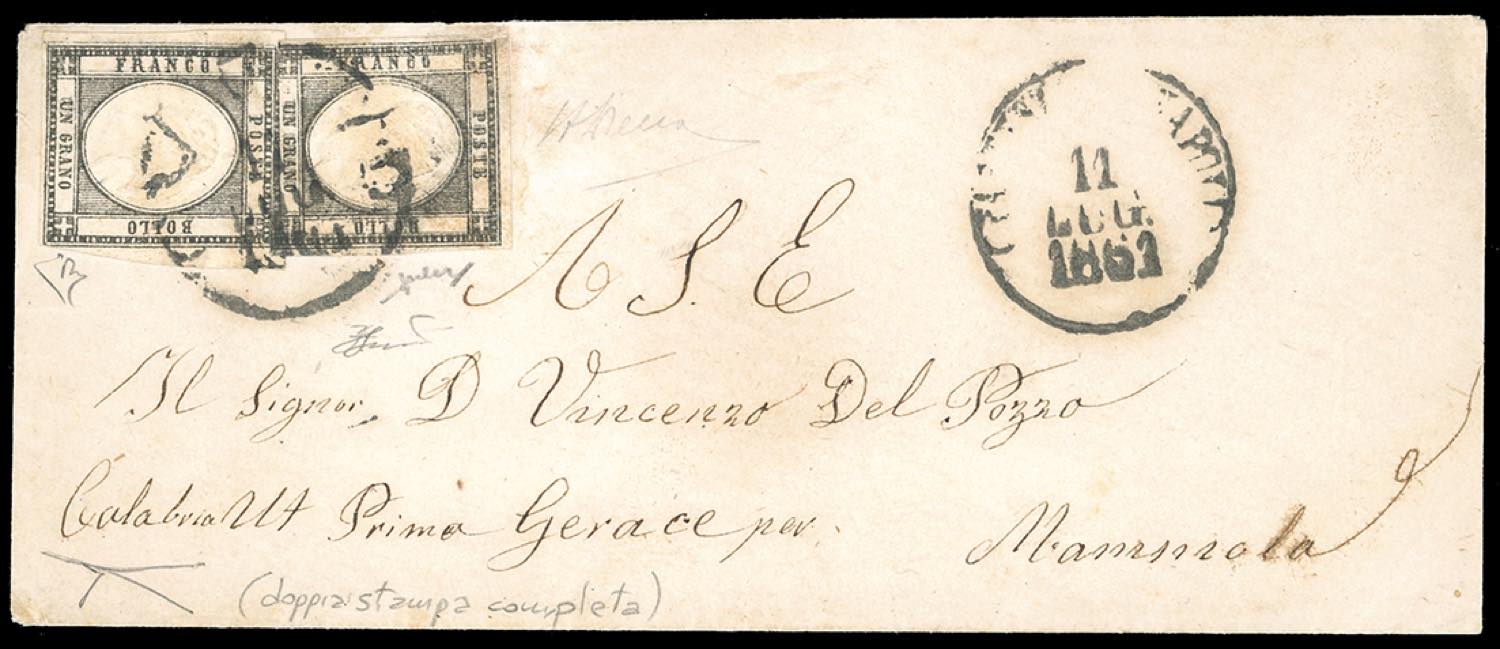 FRANCO
UN GRANO
POSTE
BOLLO
FRANCO
UN GRANO
POSTE
BOLLO
11
LUG.
1861
A S E
Il Signor D Vincenzo Del Pozzo
Calabria Ult Prima Gerace per
Mammola
(doppia stampa completa)